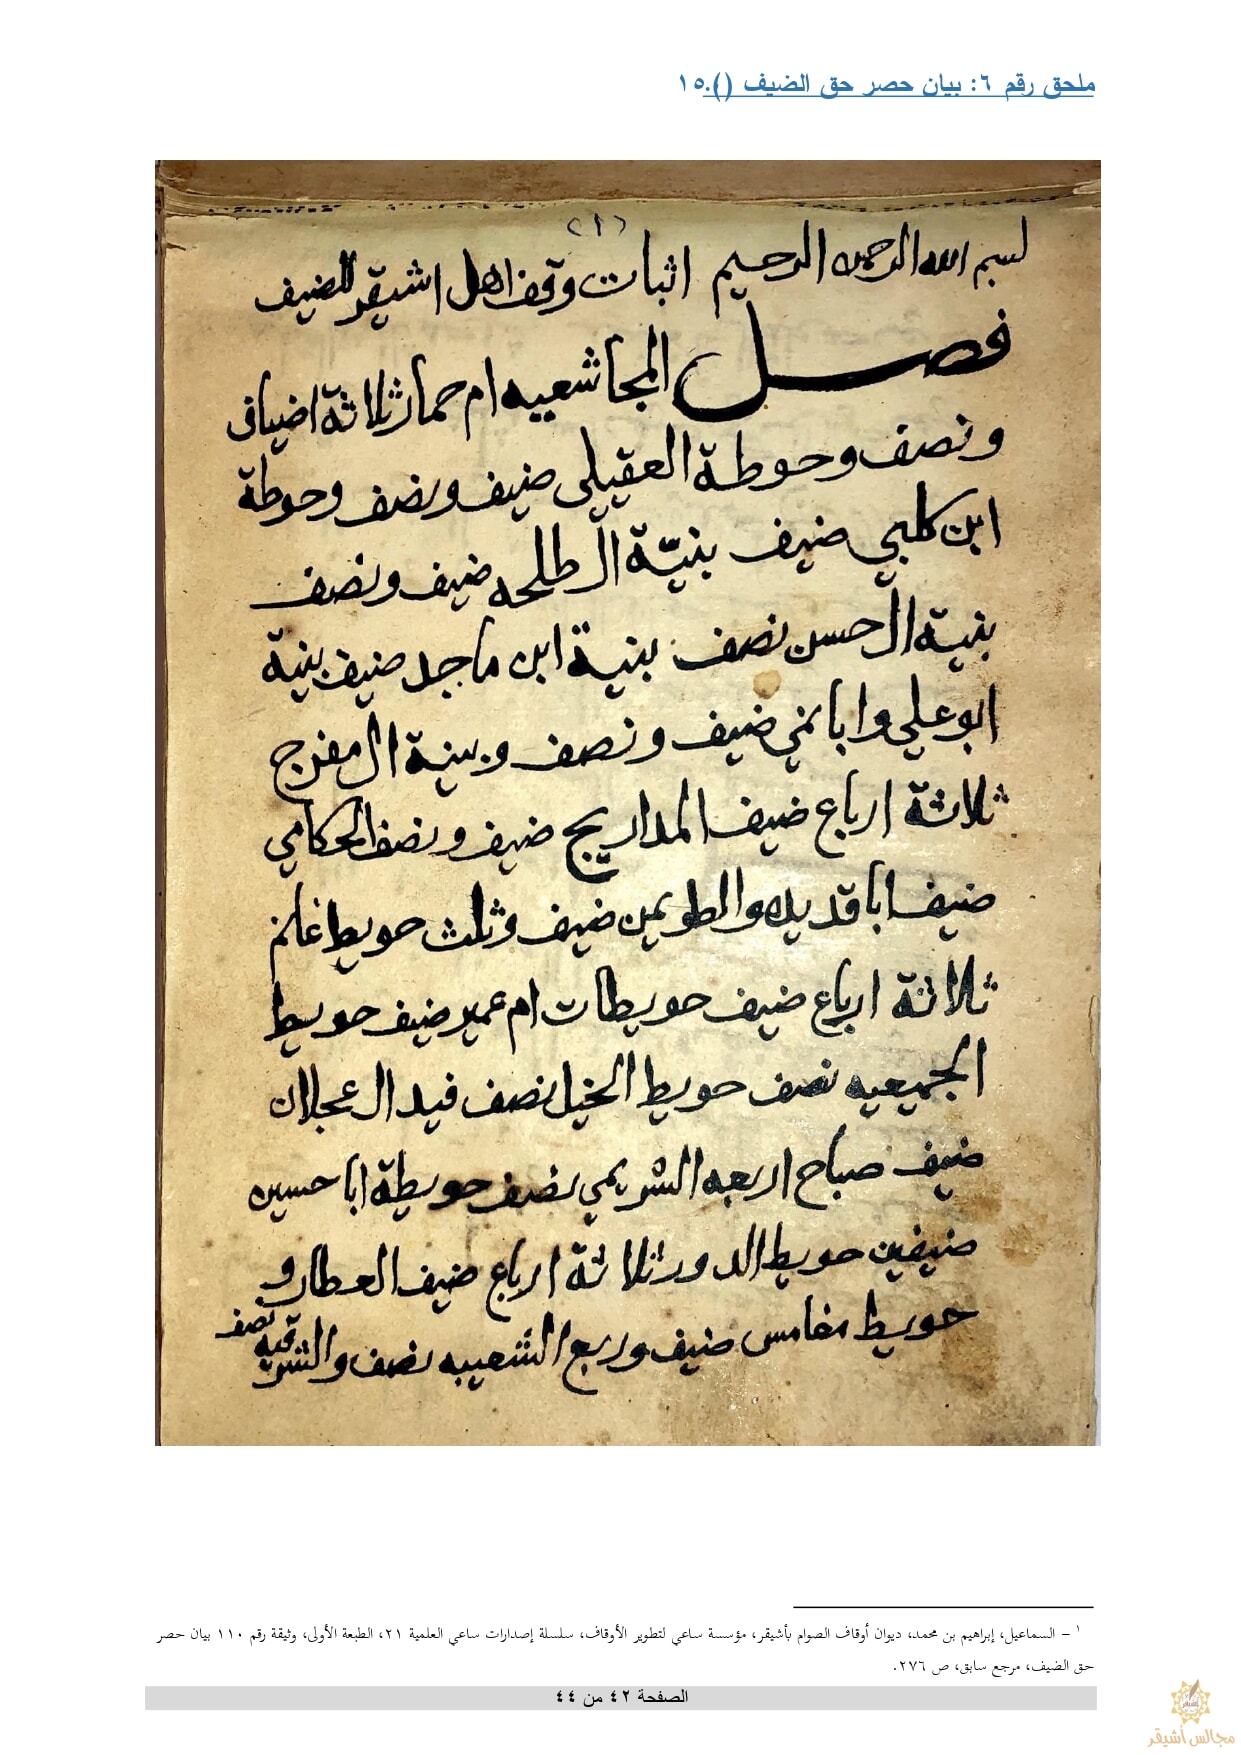 ملحق رقم ٦: بيان حصر حق الضيف ().١٥
(١)
بسم الله الرحمن الرحيم اثبات وقف اهل اشيقر للضيف
فصل المجاشعيه ام حمار ثلاثة اضياف
ونصف وحوطة العقيلي ضيف ونصف وحوطة
ابن كلبي ضيف بنيّة ال طلحه ضيف ونصف
بنية ال حسن نصف بنية ابن ماجد ضيف بنية
ابو علي وابا نمي ضيف ونصف وبنية ال مفرج
ثلاثة ارباع ضيف المداريج ضيف ونصف الحكامي
ضيف ابا قديده والطويمن ضيف وثلث حويط غانم
ثلاثة ارباع ضيف حويطات ام عمير ضيف حويط
الجميعيه نصف حويط الخيل نصف فيد ال عجلان
ضيف صباح اربعه الشريمي نصف حويطة ابا حسين
ضيفين حويط الدور ثلاثة ارباع ضيف العطار و
حويط مغامس ضيف وربع الشعيبيه نصف والشرقيه نصف
١ - السماعيل، إبراهيم بن محمد، ديوان أوقاف الصوام بأشيقر، مؤسسة ساعي لتطوير الأوقاف، سلسلة إصدارات ساعي العلمية ٢١، الطبعة الأولى، وثيقة رقم ١١٠ بيان حصر
حق الضيف، مرجع سابق، ص ٢٧٦.
الصفحة ٤٢ من ٤٤
مجالس أشيقر